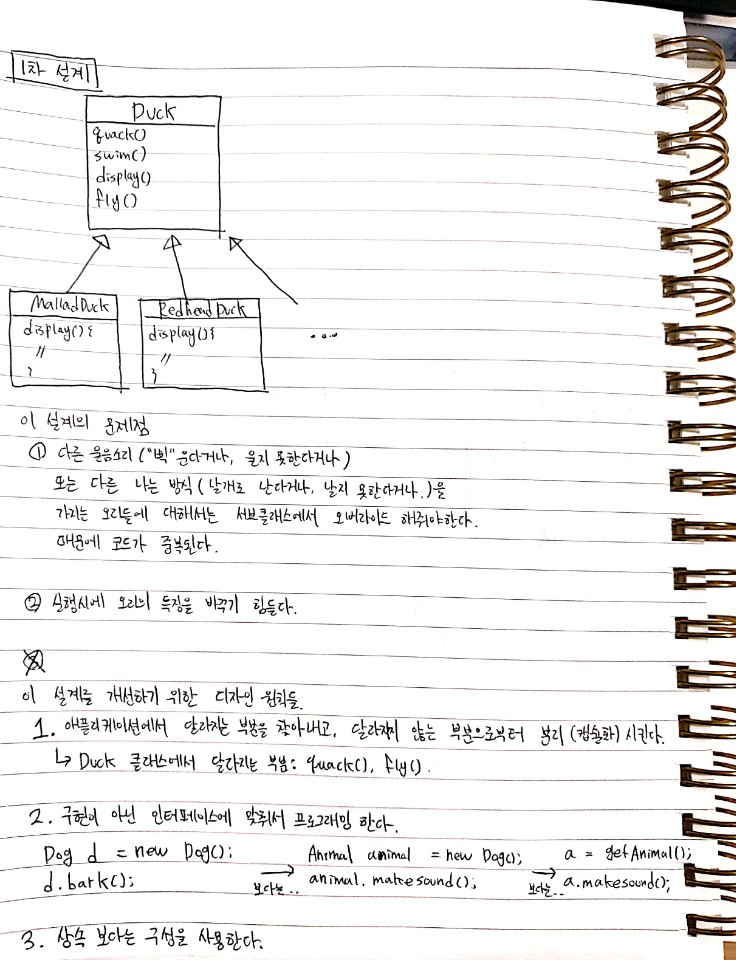 1차 설계
Duck
quack()
swim()
display()
fly()
MalladDuck
display() {
//
}
RedheadDuck
display() {
//
}
....
이 설계의 문제점
① 다른 울음소리 ("삑" 운다거나, 울지 못한다거나)
또는 다른 나는 방식 (날개로 난다거나, 날지 못한다거나.)을
가지는 오리들에 대해서는 서브클래스에서 오버라이드 해줘야한다.
때문에 코드가 중복된다.
② 실행시에 오리의 특징을 바꾸기 힘들다.
이 설계를 개선하기 위한 디자인 원칙들.
1. 애플리케이션에서 달라지는 부분을 찾아내고, 달라지지 않는 부분으로부터 분리 (캡슐화) 시킨다.
↳ Duck 클래스에서 달라지는 부분: quack(), fly().
2. 구현이 아닌 인터페이스에 맞춰서 프로그래밍 한다.
Dog d = new Dog(); Animal animal = new Dog(); a = getAnimal();
d.bark(); 보다는.. → animal.makesound(); 보다는.. → a.makesound();
3. 상속 보다는 구성을 사용한다.